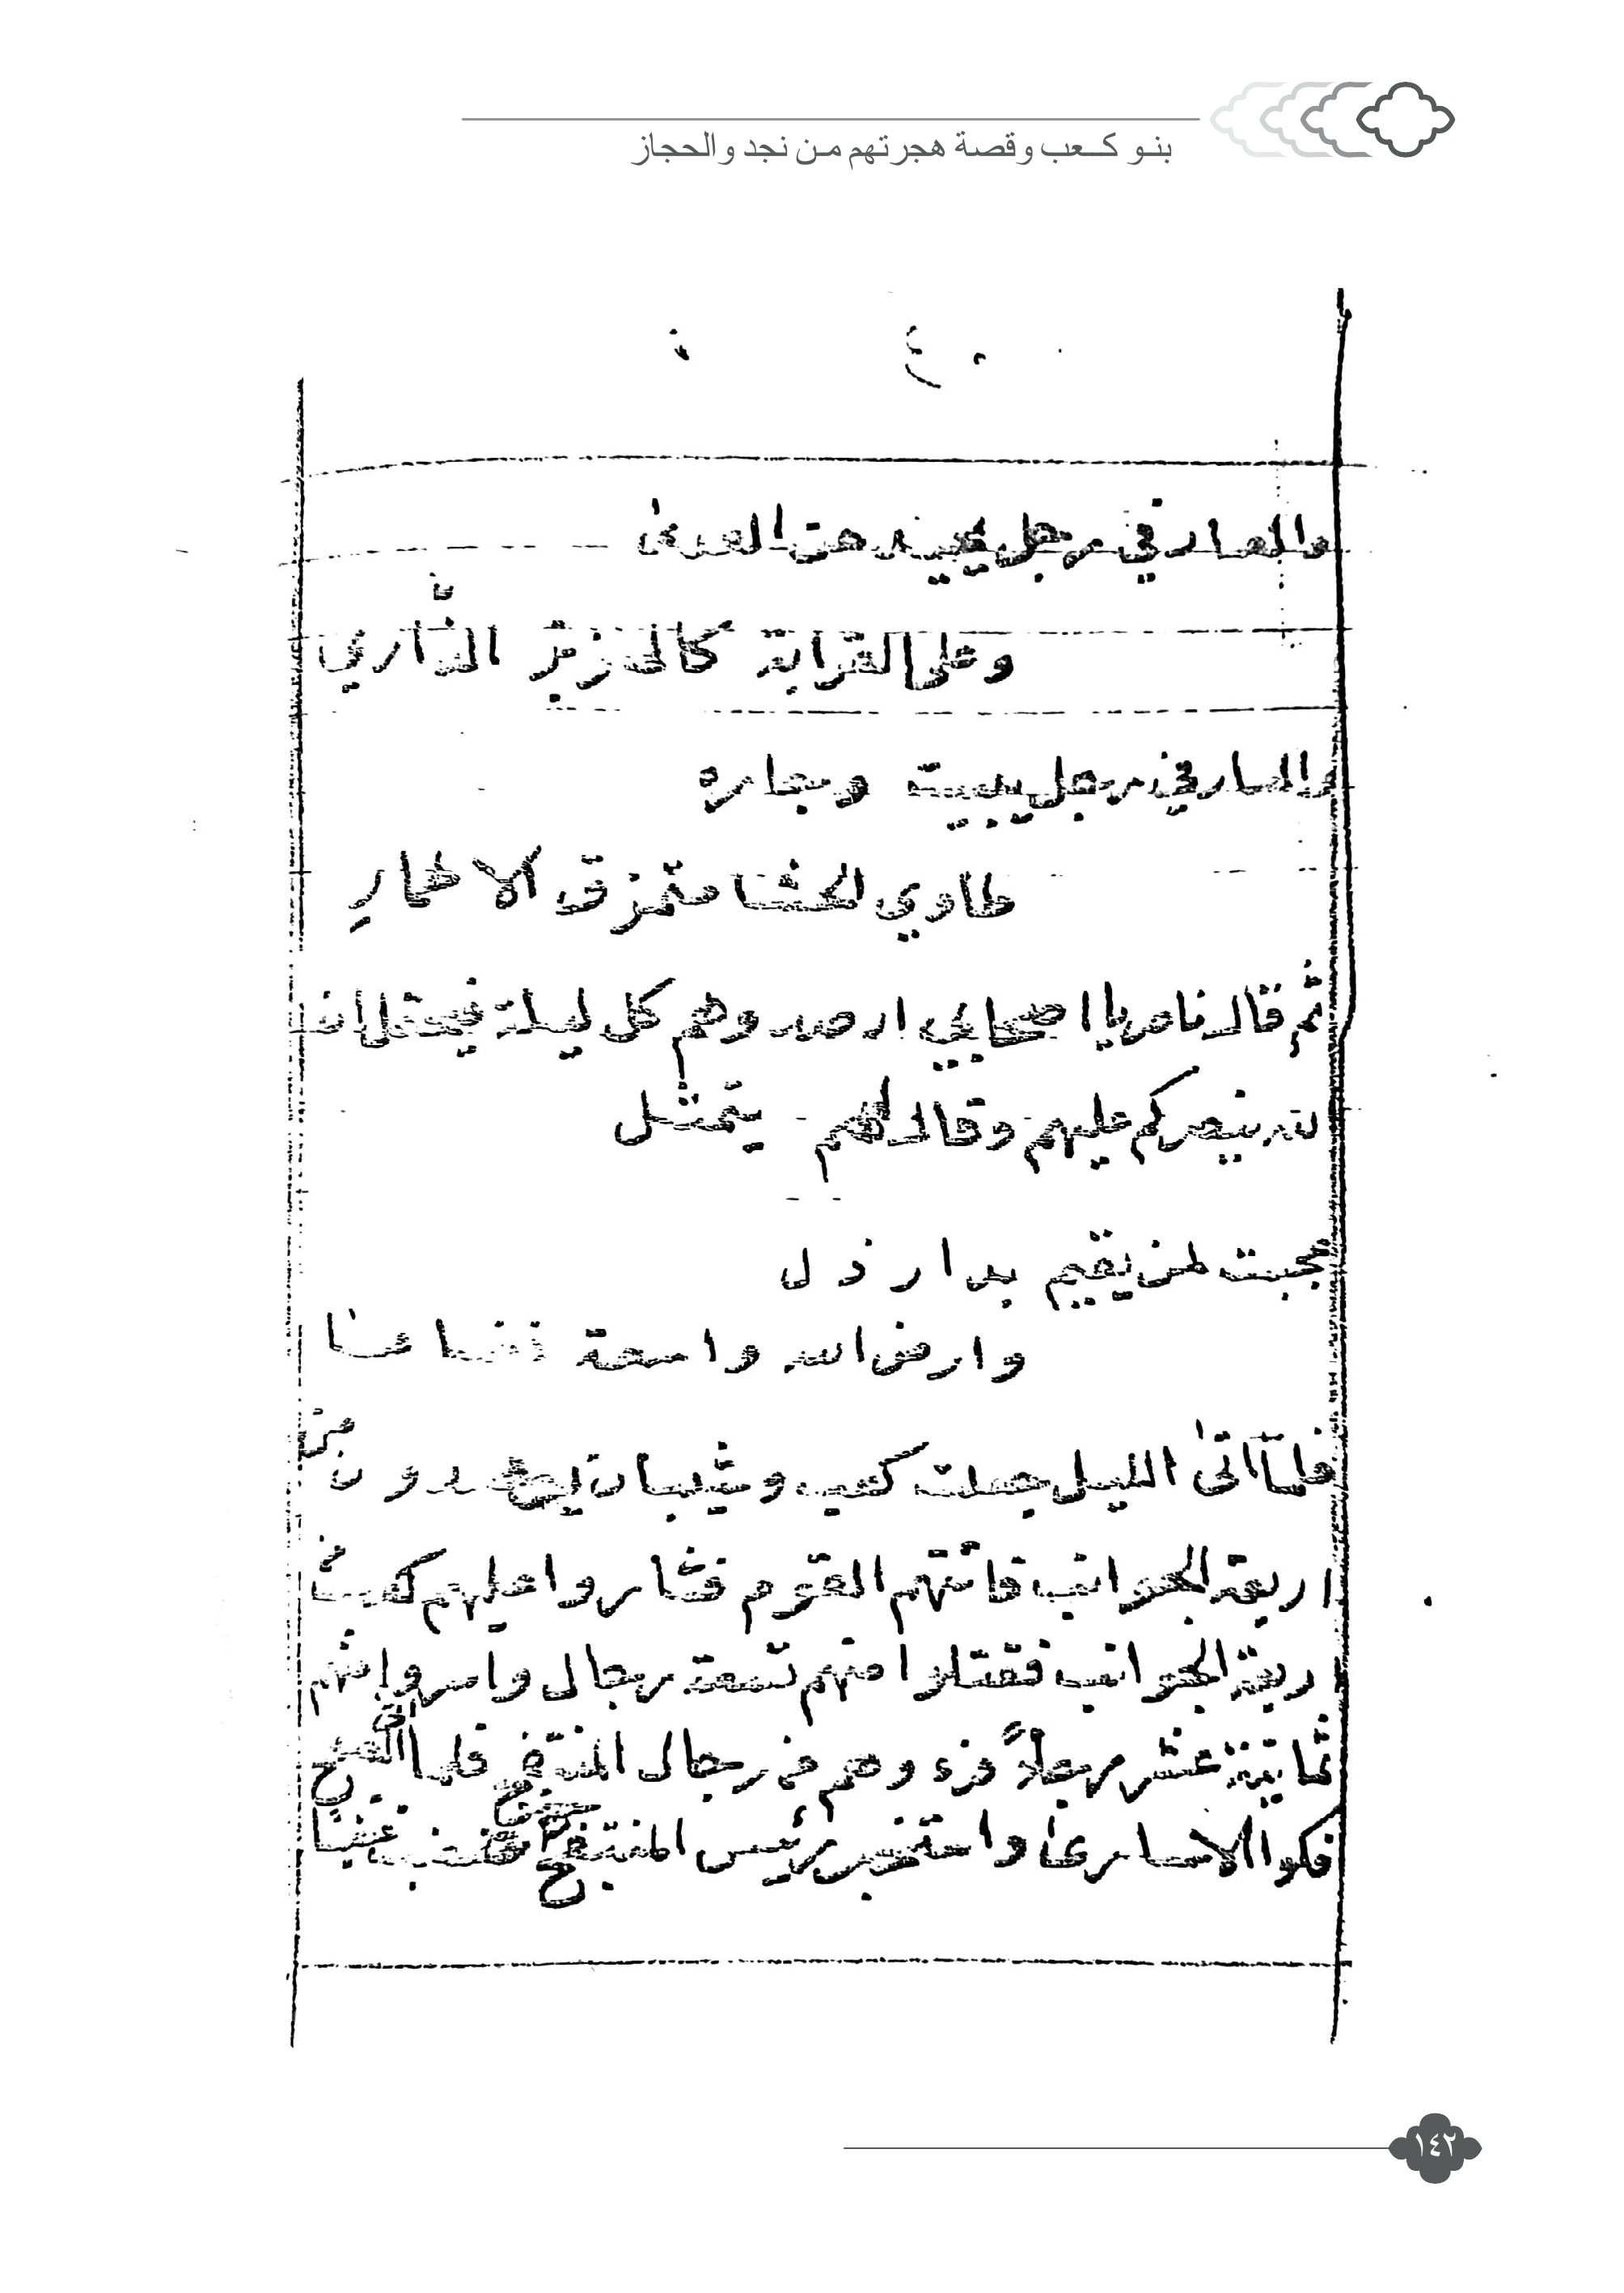 بنو كعب وقصة هجرتهم من نجد والحجاز
٤٠
والعار في رجل يحيد عن العدى
وعلى القرابة كالهزبر الضاري
والعار في رجل يبيت وجاره
طاوي الحشا متمزق الاطمار
ثم قال ناصر يا اصحابي ارصدوهم كل ليلة فيحقل ان
الله ينصركم عليهم وقال لهم يتمثل
عجبت لمن يقيم بدار ذل
وارض الله واسعة فضاها
فلما اتى الليل جعلت كعب وشيبان يرصدون من
اربعة الجوانب فاتتهم القوم فثاروا عليهم كعب من
اربعة الجوانب فقتلوا منهم تسعة رجال واسروا منهم
ثمانية عشر رجلاً وهم من رجال المنتفج فلما اتى الصبح
فكوا الاسارى واستخبر رئيس المنتفج فغضب غضبا
١٤٢